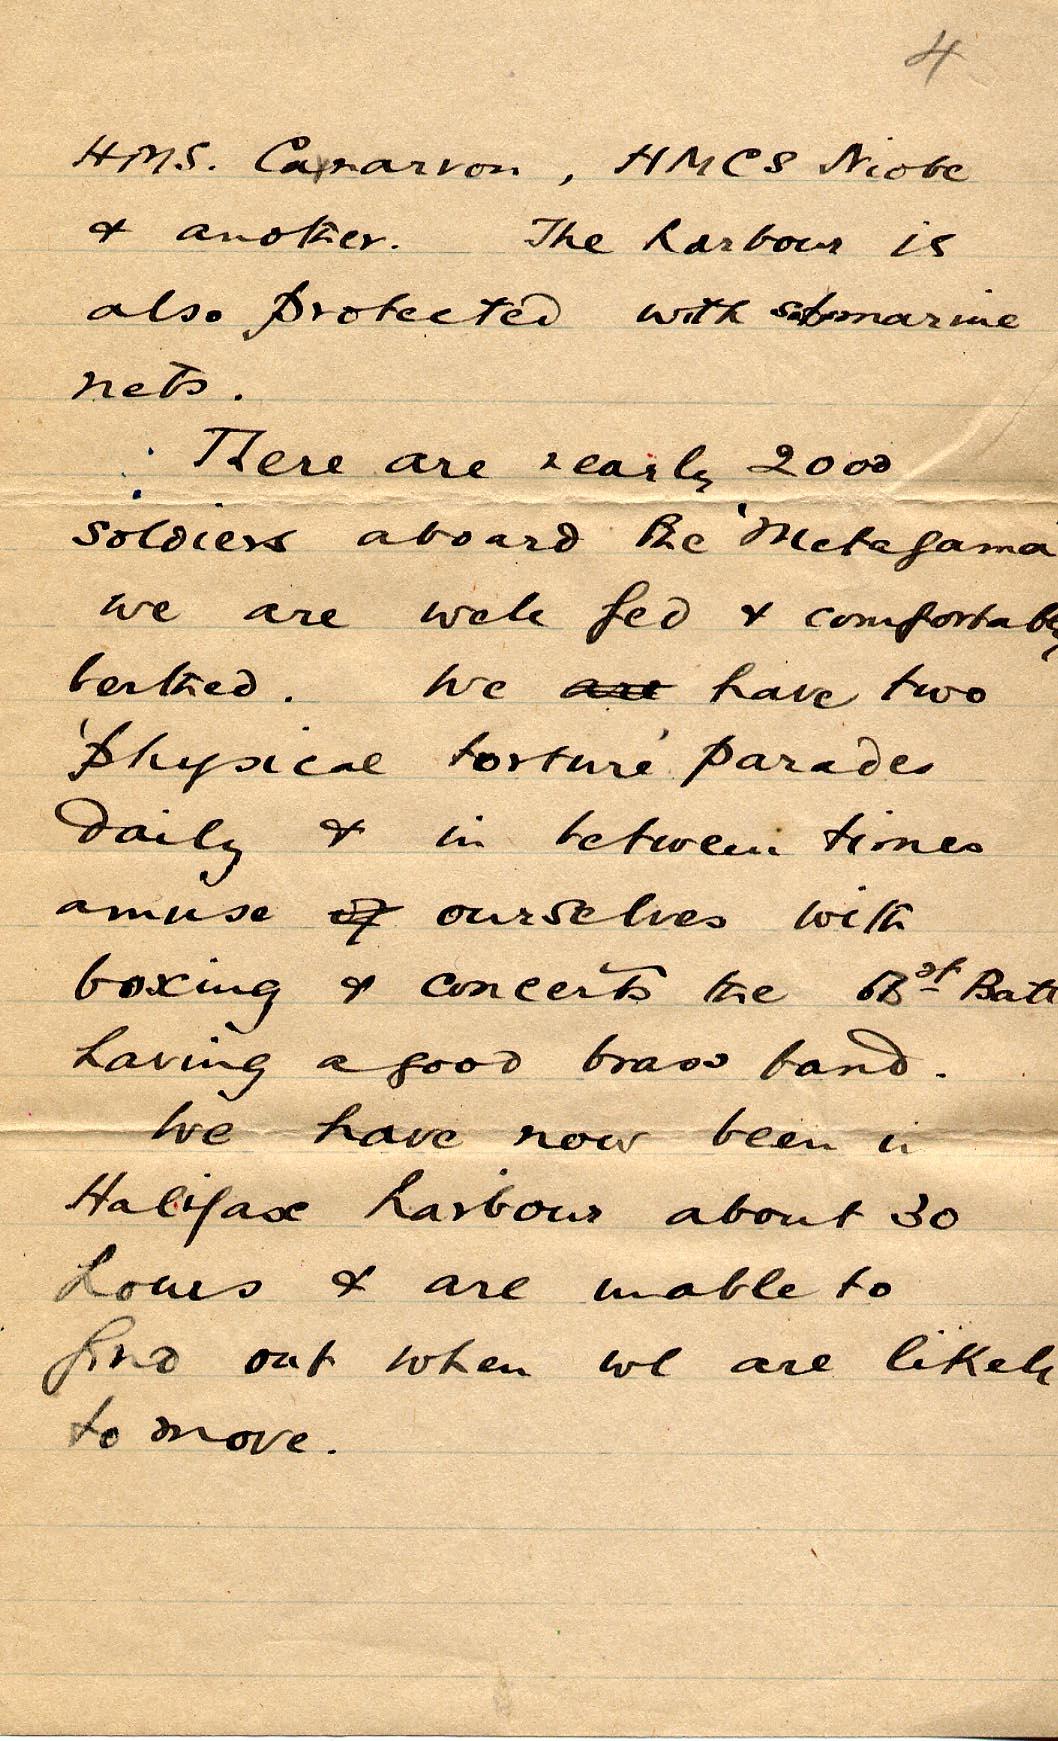 4
HMS. Carnarvon, HMCS Niobe
& another. The harbour is
also protected with submarine
nets.
There are nearly 2000
soldiers aboard the 'Metagama
we are well fed & comfortably
berthed. We are have two
'physical torture' parades
daily & in between times
amuse of ourselves with
boxing & concerts the Batt
having a good brass band.
We have now been in
Halifax harbour about 30
hours & are unable to
find out when we are likely
to move.